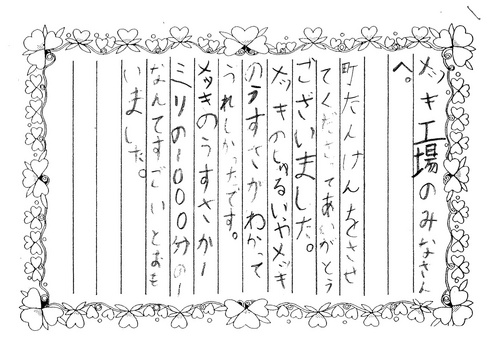 メッキ工場のみなさん
へ。
町たんけんをさせ
てくださってありがとう
ございました。
メッキのしゅるいやメッキ
のうすさがわかって
うれしかったです。
メッキのうすさが一
ミリの一000分の一
なんてすごいとおも
いました。